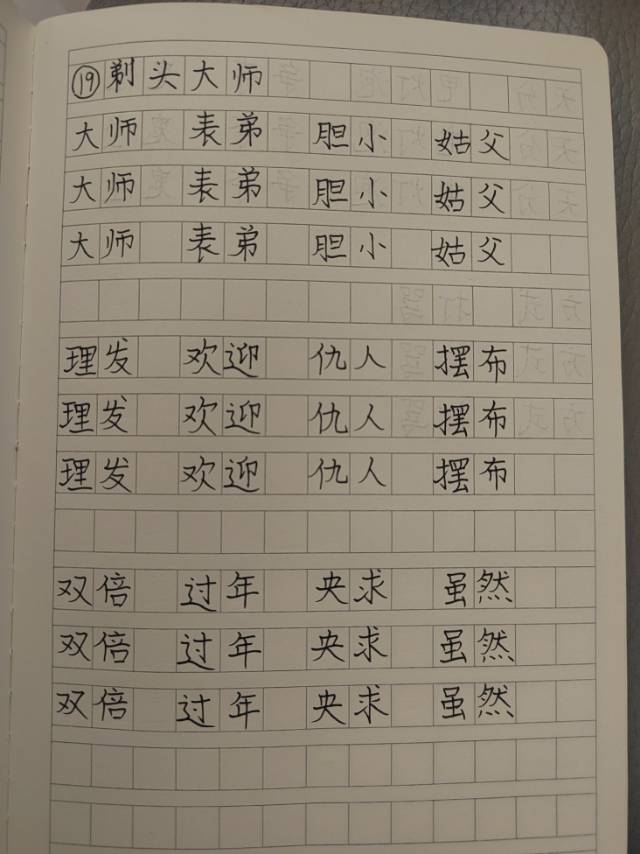 ⑲剃头大师
大师 表弟 胆小 姑父
大师 表弟 胆小 姑父
大师 表弟 胆小 姑父
理发 欢迎 仇人 摆布
理发 欢迎 仇人 摆布
理发 欢迎 仇人 摆布
双倍 过年 央求 虽然
双倍 过年 央求 虽然
双倍 过年 央求 虽然